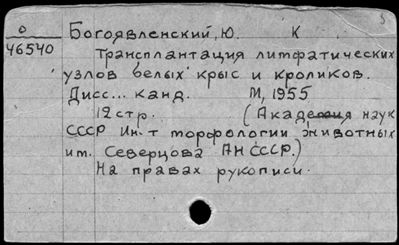 0
46540
Богоявленский, Ю. К
Трансплантация лимфатических
узлов белых крыс и кроликов.
Дисс... канд. М, 1955
12 стр. (Академия наук
СССР Ин-т морфологии животных
им. Северцова АН СССР.)
На правах рукописи.